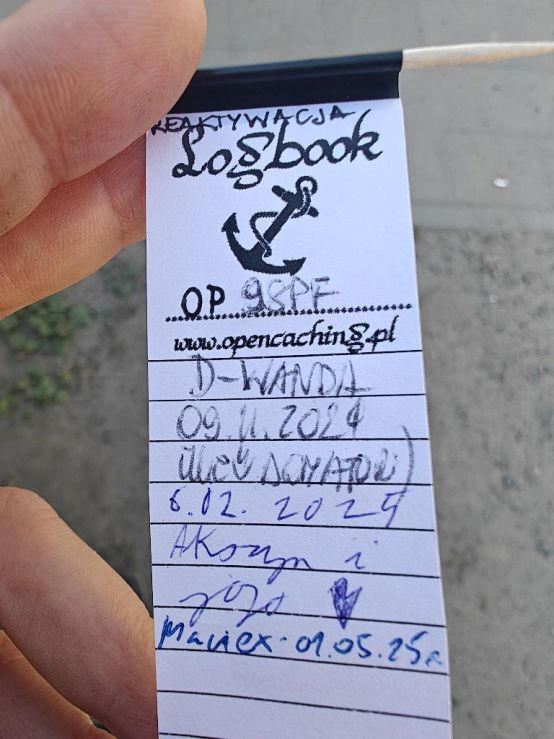 REAKTYWACJA
Logbook
OP 9SPF
www.opencaching.pl
D-WANDA
09.11.2024
6.02. 2025
i
jojo
Maciex - 01.05.25r